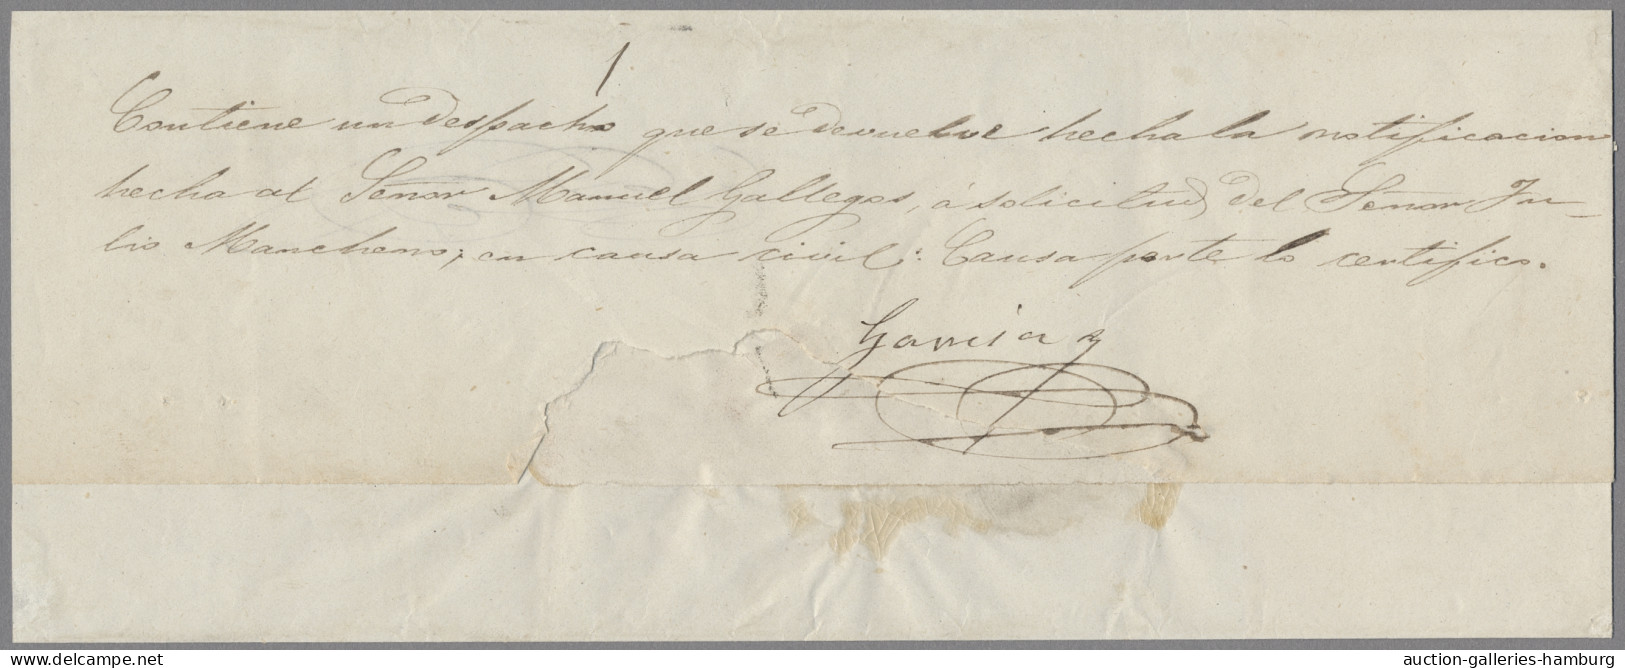 Contiene un despacho que se devuelve hecha la notificacion
hecha al Señor Manuel Gallegos, á solicitud del Señor Ju-
lio Mancheno, en causa civil. Causa parte lo certifico.
Garcia
delcampe.net
auction-galleries-hamburg